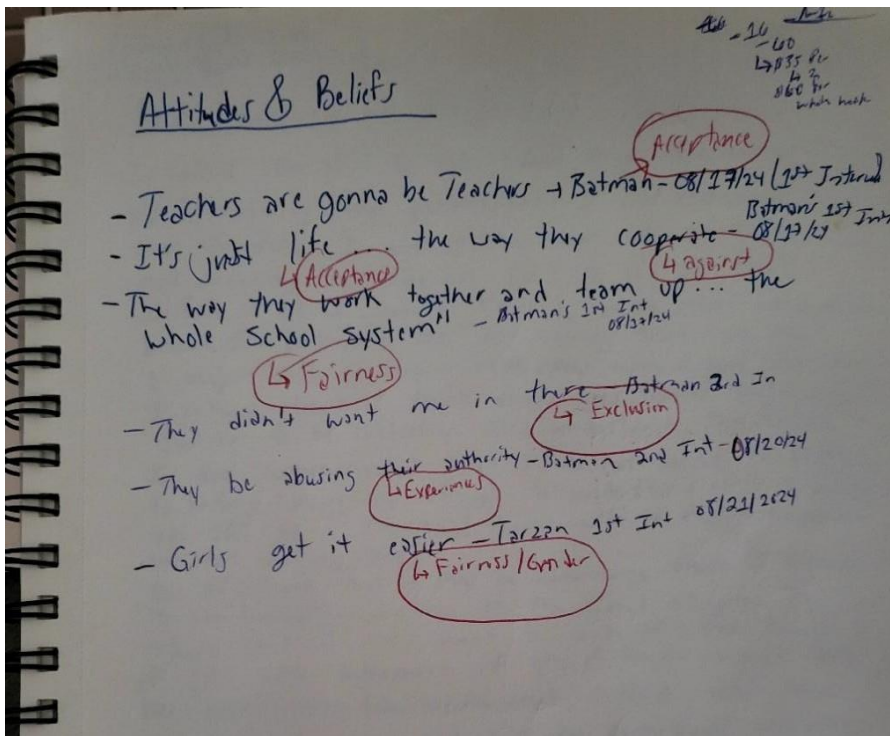 - 16
- 60
↳ $35 Per
$60 Per
whole week
Attitudes & Beliefs
Acceptance
- Teachers are gonna be Teachers → Batman - 08/17/24 (1st Interval
- It's just life... the way they cooperate - Batman's 1st Int
08/17/24
↳ Acceptance
↳ against
- The way they work together and team up... the
whole School system" - Batman's 1st Int
08/17/24
↳ Fairness
- They didn't want me in there - Batman 2rd In
↳ Exclusion
- They be abusing their authority - Batman 2nd Int - 08/20/24
↳ Experiences
- Girls get it easier - Tarzan 1st Int 08/21/2024
↳ Fairness/Gender